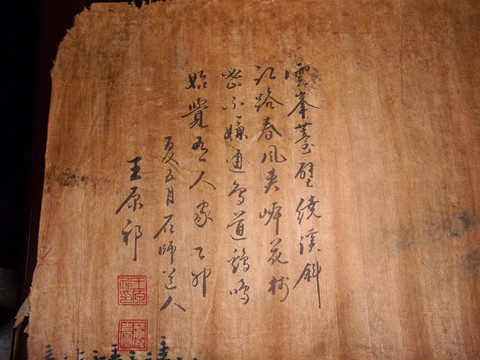 雲峯薹壁繞溪斜
江路春風夾岸花樹
密不嫌通鳥道鷄鳴
始覺有人家 乙卯
夏五月石師道人
王原祁